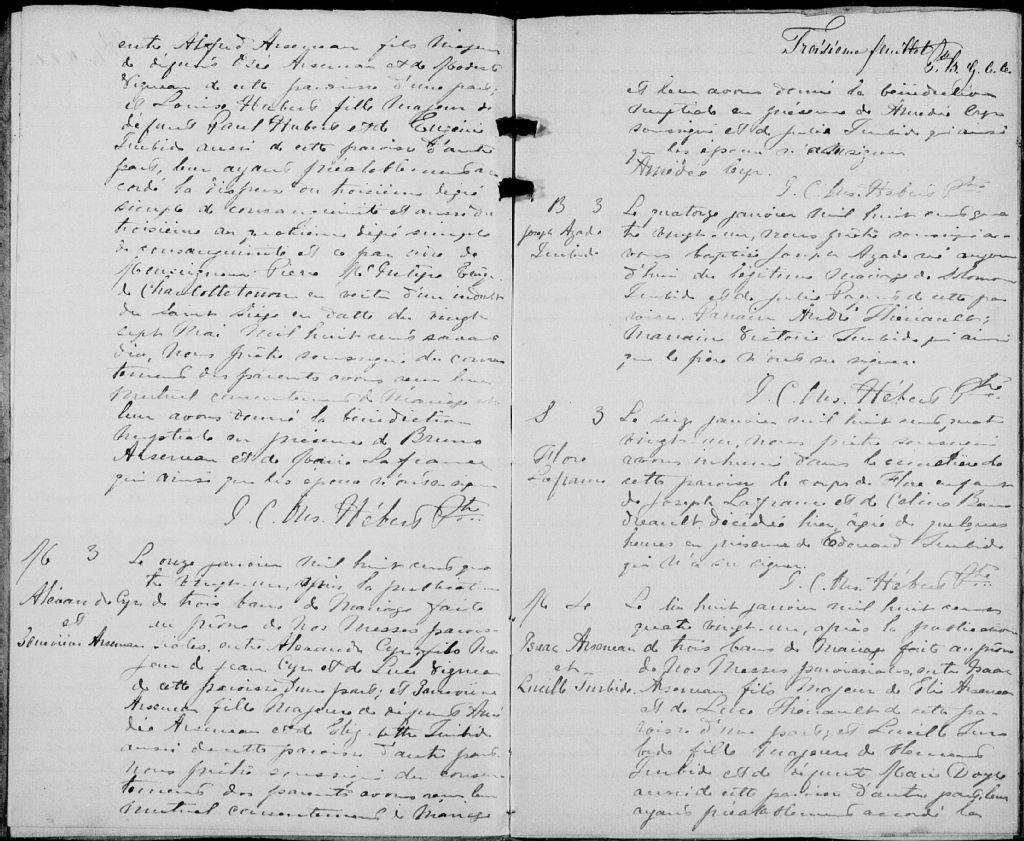 entre Alfred Arseneau fils Majeur
de défunt Élie Arseneau et de Modeste
Vigneau de cette paroisse d'une part;
et Louise Hébert fille Majeur de
défunt Paul Hubert et de Eugénie
Turbide aussi de cette paroisse d'autre
part, leur ayant préalablement ac
cordé la dispense du troisième degré
simple de consanguinité et aussi du
troisième au quatrième degré simple
de consanguinité et ce par
Monseigneur Pierre McIntyre Évêq.
de Charlottetown en vertu d'un indult
du Saint Siège en datte du vingt
sept Mai Mil huit cent
dix, Nous prêtre soussigné du consen
tement des parents avons reçu leur
Mutuel consentement de Mariage et
leur avons donné la bénédiction
Nuptiale en présence de Bruno
Arseneau et de Marie Lafrance
qui ainsi que les époux
J. C. Ars. Hébert Ptre
M 3
Alexandre Cyr
et
Geneviève Arseneau
Le onze janvier Mil huit cent qua
tre vingt-un, après la publication
de trois bans de Mariage faite
au prône de Nos Messes parois-
siales, entre Alexandre Cyr fils Ma
jeur de Jean Cyr et de Luce Vigneau
de cette paroisse d'une part; et Geneviève
Arseneau fille Majeure de défunt Amé
dée Arseneau et de Élizabethe Turbide
aussi de cette paroisse d'autre part
Nous prêtre soussigné du consen
tement des parents avons reçu leur
Mutuel consentement de Mariage
Troisième feuillet
et leur avons donné la bénédiction
nuptiale en présence de Amédée Cyr
soussigné et de Julie Turbide qui ainsi
que les époux n'a su signer
Amédée Cyr.
J. C. Ars. Hébert Ptre
B 3
Joseph Azade
Turbide
Le quatorze janvier Mil huit cent qua
tre vingt-un, nous prêtre soussigné a-
vons baptisé Joseph Azade né aujour
d'hui du légitime Mariage de Salomon
Turbide et de Julie de cette pa-
roisse. Parrain André Thériault;
Marraine Victoire Turbide qui ainsi
que le père n'ont su signer.
J. C. Ars. Hébert Ptre
S 3
Flore
Lafrance
Le seize janvier Mil huit cent quatre
vingt-un, nous prêtre soussigné
avons inhumé dans le cimetière de
cette paroisse le corps de Flore enfant
de Joseph Lafrance et de Célina Bou
dreault décédée hier, âgée de quelques
heures en présence de Édouard Turbide
qui n'a su signer.
J. C. Ars. Hébert Ptre
M 4e
Isaac Arseneau
et
Lucille Turbide
Le dix huit janvier Mil huit cent
quatre vingt-un, après la publication
de trois bans de Mariage faite au prône
de Nos Messes paroissiales, entre Isaac
Arseneau fils Majeur de Élie Arseneau
et de Luce Thériault de cette pa-
roisse d'une part, et Lucille Tur
bide fille Majeure de
Turbide et de défunte Marie Doyle
aussi de cette paroisse d'autre part, leur
ayant préalablement accordé la